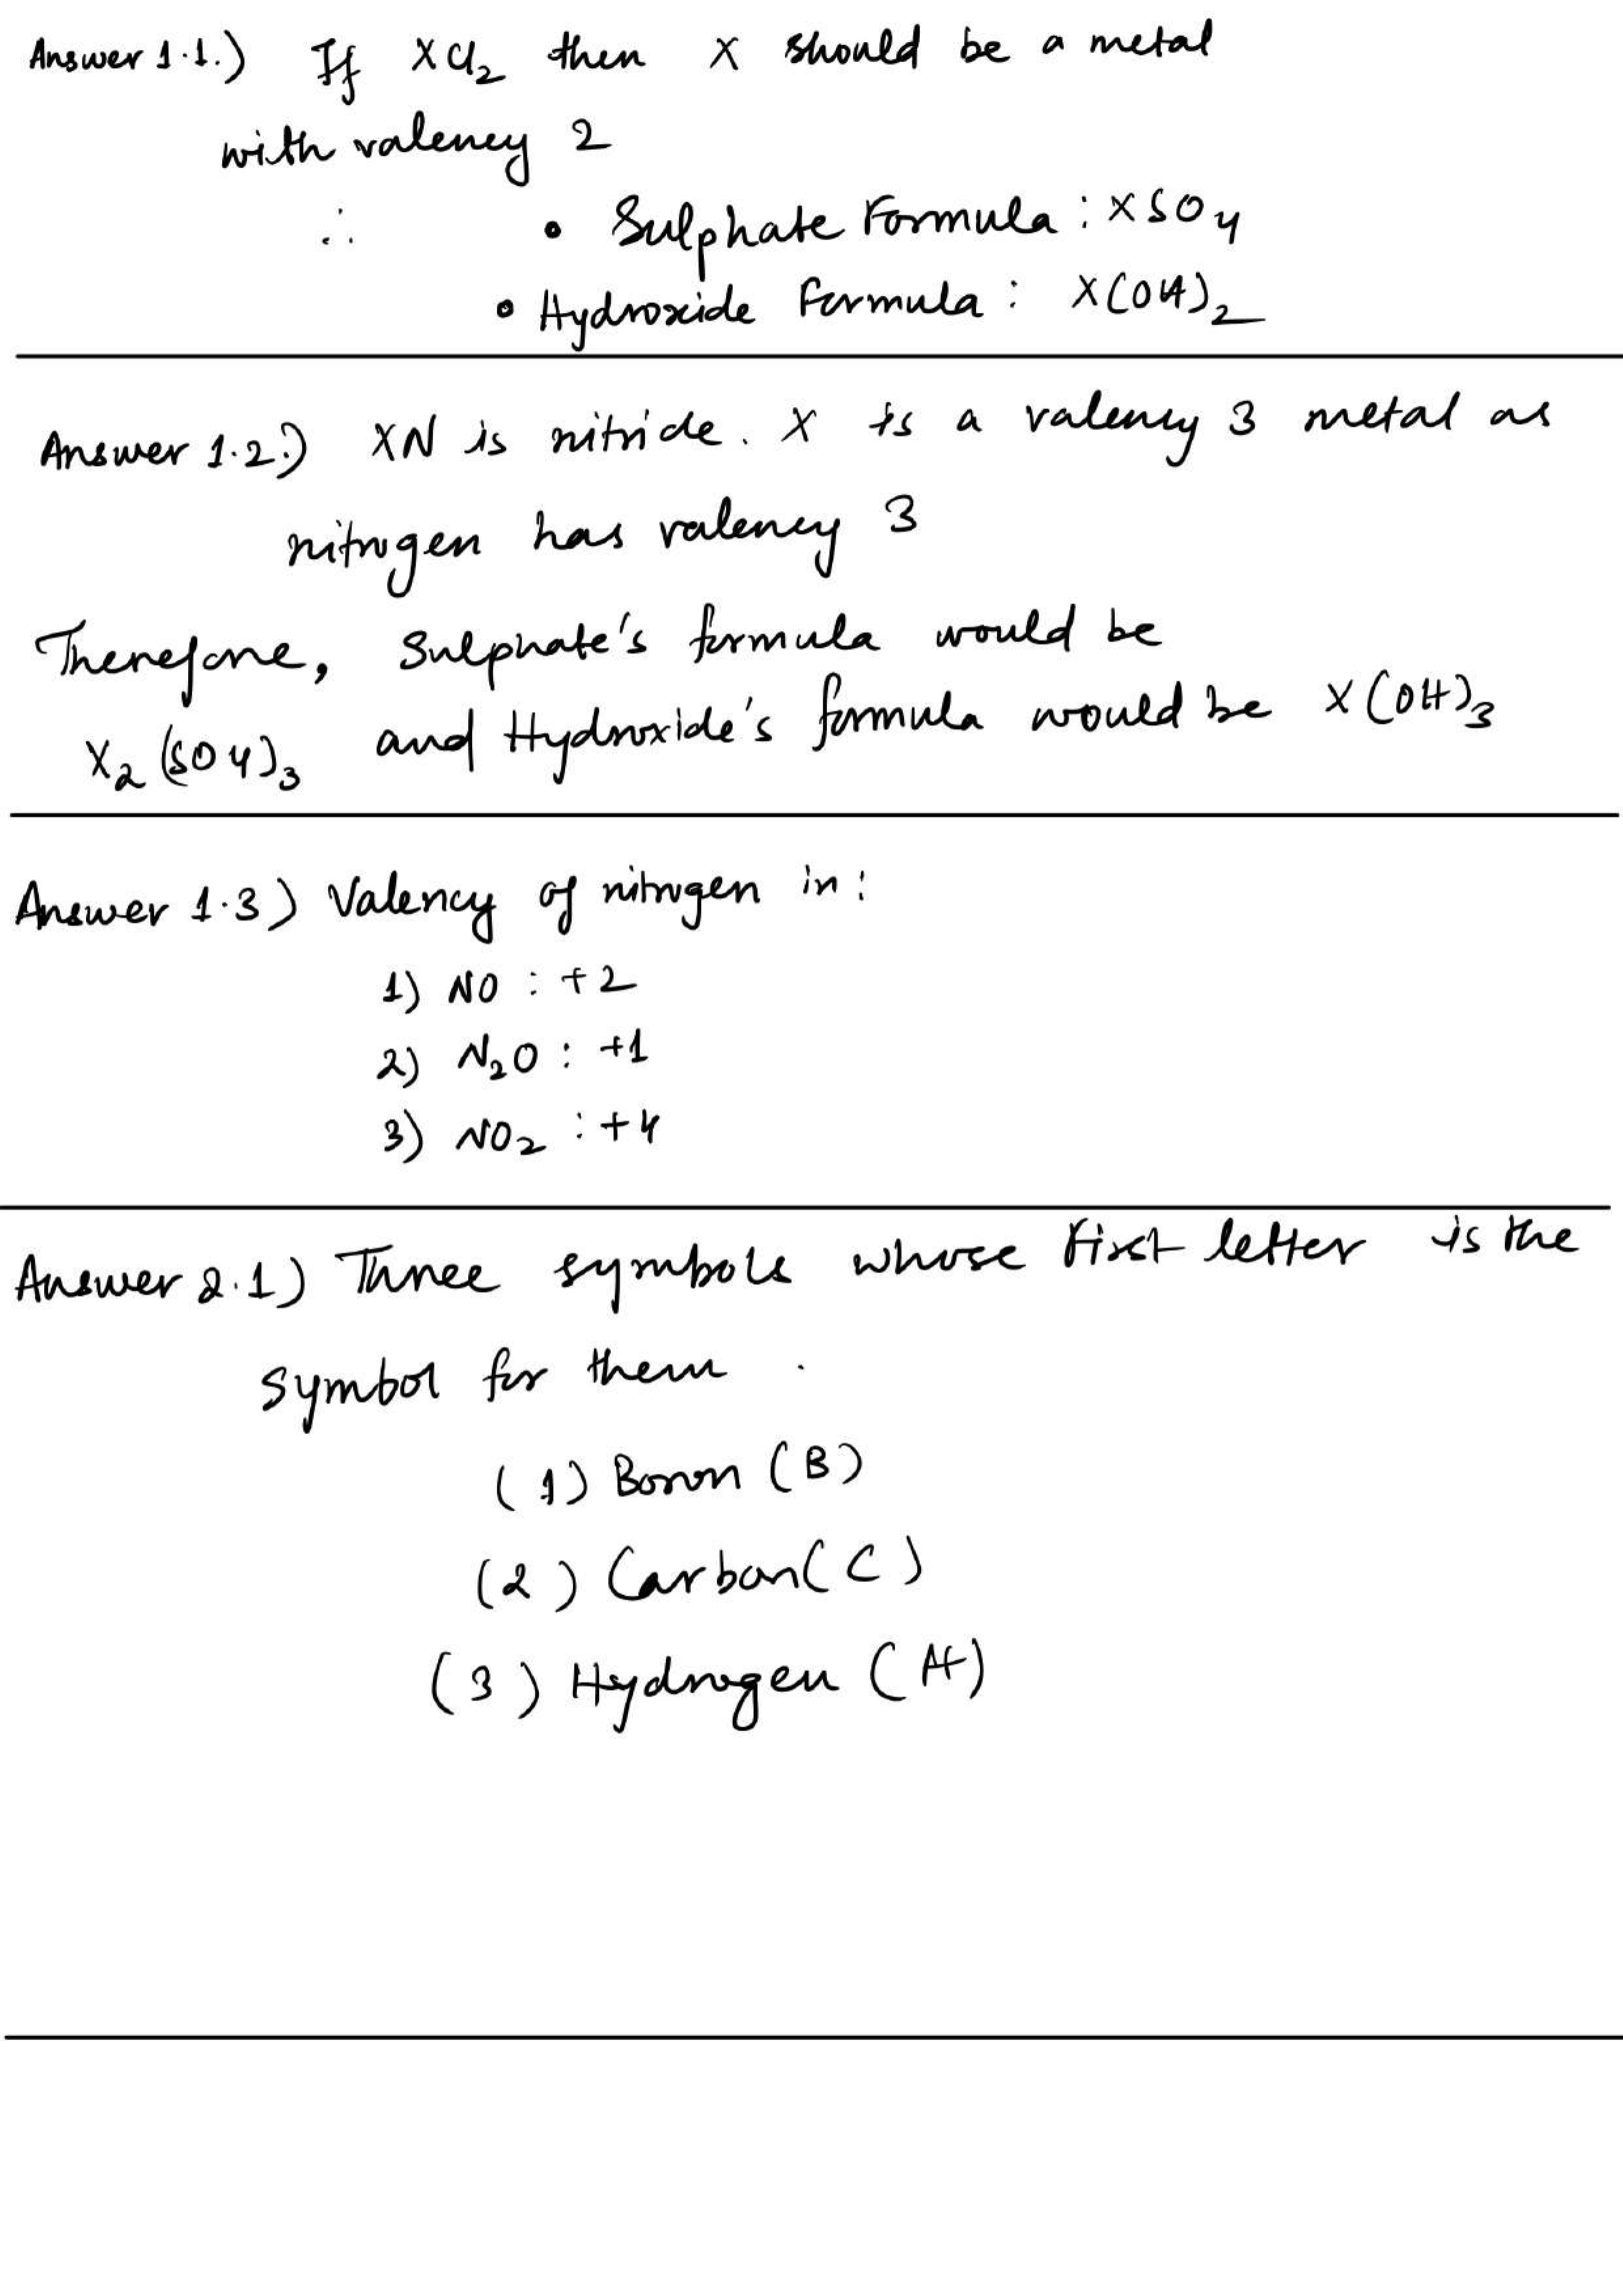 Answer 1.1.) If XCl₂ then X should be a metal
with valency 2
∴ • Sulphate Formula : XSO₄
• Hydroxide Formula : X(OH)₂
Answer 1.2.) XN is nitride. X is a valency 3 metal as
nitrogen has valency 3
Therefore, Sulphate's formula would be
X₂(SO₄)₃ and Hydroxide's formula would be X(OH)₃
Answer 1.3) Valency of nitrogen in :
1) NO : +2
2) N₂O : +1
3) NO₂ : +4
Answer 2.1) Three symbols whose first letter is the
symbol for them .
(1) Boron (B)
(2) Carbon (C)
(3) Hydrogen (H)